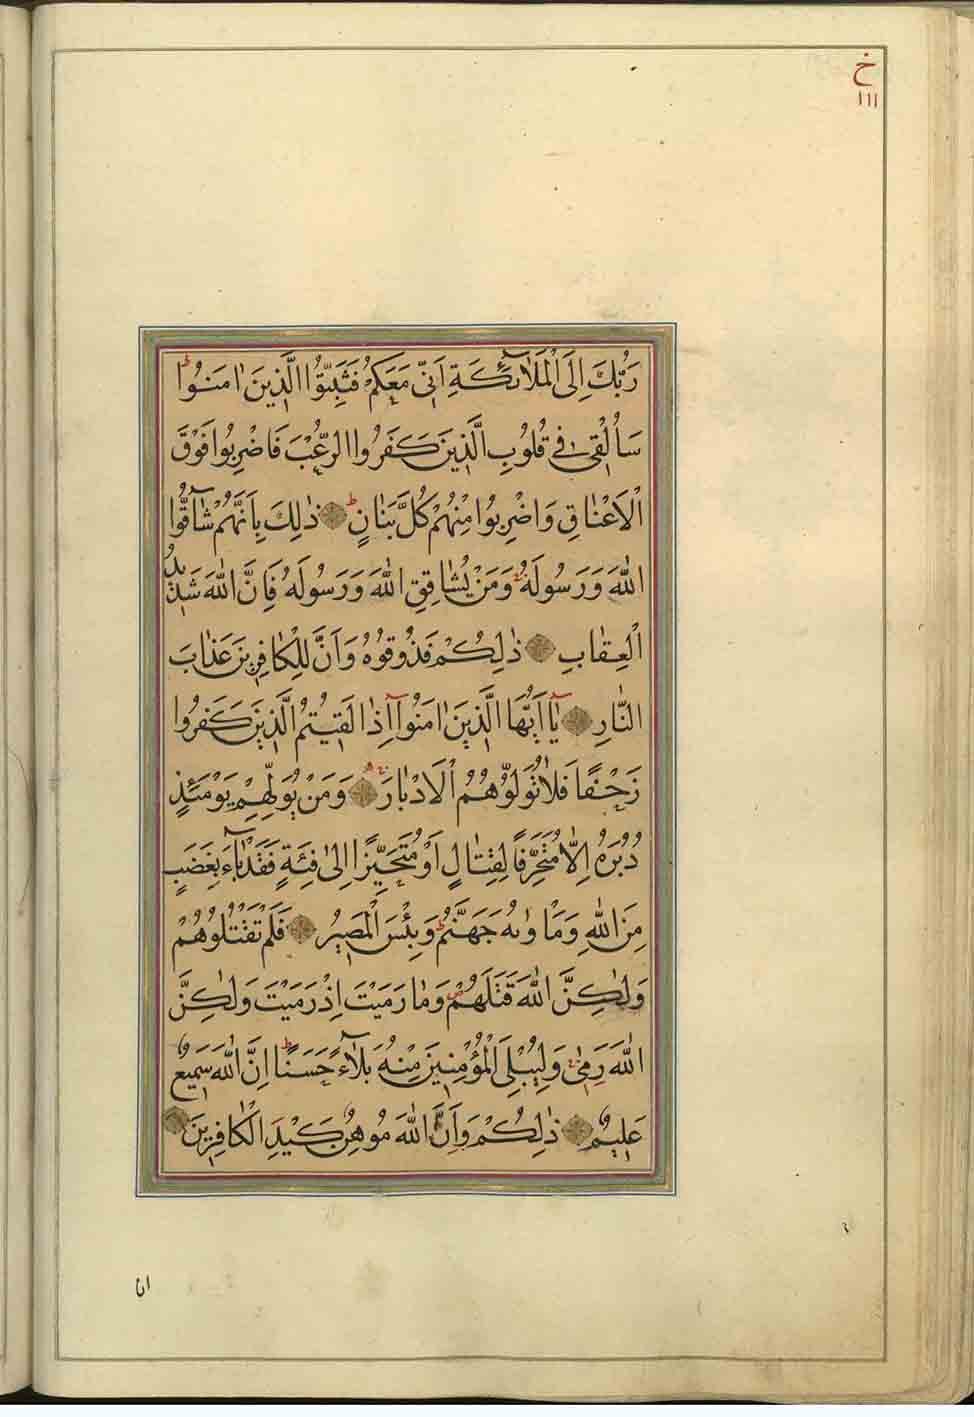 خ
١١١
رَبُّكَ اِلَى الْمَلٰٓائِكَةِ اَنّٖى مَعَكُمْ فَثَبِّتُوا الَّذٖينَ اٰمَنُواؕ
سَاُلْقٖى فٖى قُلُوبِ الَّذٖينَ كَفَرُوا الرُّعْبَ فَاضْرِبُوا فَوْقَ
الْاَعْنٰاقِ وَاضْرِبُوا مِنْهُمْ كُلَّ بَنٰانٍؕ ذٰلِكَ بِاَنَّهُمْ شٰٓاقُّوا
اللّٰهَ وَرَسُولَهُ وَمَنْ يُشٰاقِقِ اللّٰهَ وَرَسُولَهُ فَاِنَّ اللّٰهَ شَدٖيدُ
الْعِقٰابِ ذٰلِكُمْ فَذُوقُوهُ وَاَنَّ لِلْكٰافِرٖينَ عَذٰابَ
النّٰارِ يٰٓا اَيُّهَا الَّذٖينَ اٰمَنُوٓا اِذٰا لَقٖيتُمُ الَّذٖينَ كَفَرُوا
زَحْفًا فَلٰا تُوَلُّوهُمُ الْاَدْبٰارَ وَمَنْ يُوَلِّهِمْ يَوْمَئِذٍ
دُبُرَهُ اِلّٰا مُتَحَرِّفًا لِقِتٰالٍ اَوْ مُتَحَيِّزًا اِلٰى فِئَةٍ فَقَدْ بٰٓاءَ بِغَضَبٍ
مِنَ اللّٰهِ وَمَاْوٰىهُ جَهَنَّمُؕ وَبِئْسَ الْمَصٖيرُ فَلَمْ تَقْتُلُوهُمْ
وَلٰكِنَّ اللّٰهَ قَتَلَهُمْ وَمٰا رَمَيْتَ اِذْ رَمَيْتَ وَلٰكِنَّ
اللّٰهَ رَمٰى وَلِيُبْلِىَ الْمُؤْمِنٖينَ مِنْهُ بَلٰٓاءً حَسَنًاؕ اِنَّ اللّٰهَ سَمٖيعٌ
عَلٖيمٌ ذٰلِكُمْ وَاَنَّ اللّٰهَ مُوهِنُ كَيْدِ الْكٰافِرٖينَ
ان